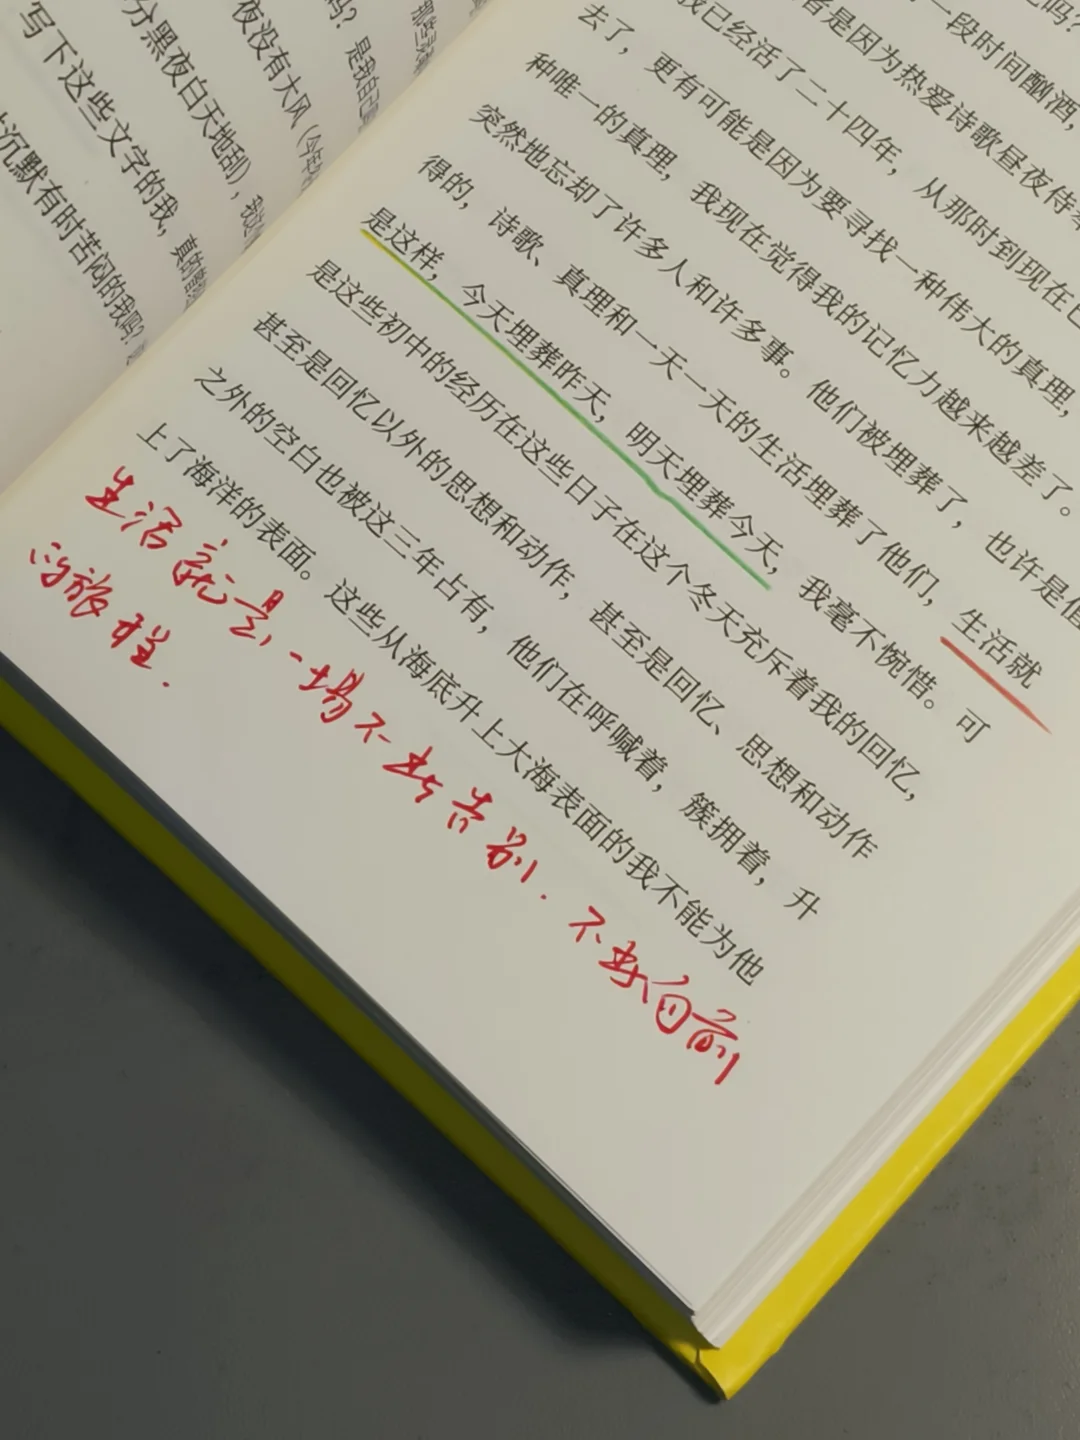 写下这些文字的我，真的
沉默有时苦闷的我吗？
分黑夜白天地刮），我
夜没有大风（今年
吗？是我自己
那些
一段时间酗酒，
者是因为热爱诗歌昼夜侍
我已经活了二十四年，从那时到现在已
去了，更有可能是因为要寻找一种伟大的真理，
种唯一的真理，我现在觉得我的记忆力越来越差了。
突然地忘却了许多人和许多事。他们被埋葬了，也许是值
得的，诗歌、真理和一天一天的生活埋葬了他们，生活就
是这样，今天埋葬昨天，明天埋葬今天，我毫不惋惜。可
是这些初中的经历在这些日子在这个冬天充斥着我的回忆，
甚至是回忆以外的思想和动作，甚至是回忆、思想和动作
之外的空白也被这三年占有，他们在呼喊着，簇拥着，升
上了海洋的表面。这些从海底升上大海表面的我不能为他
生活就是一场不断告别.不断向前
的旅程.